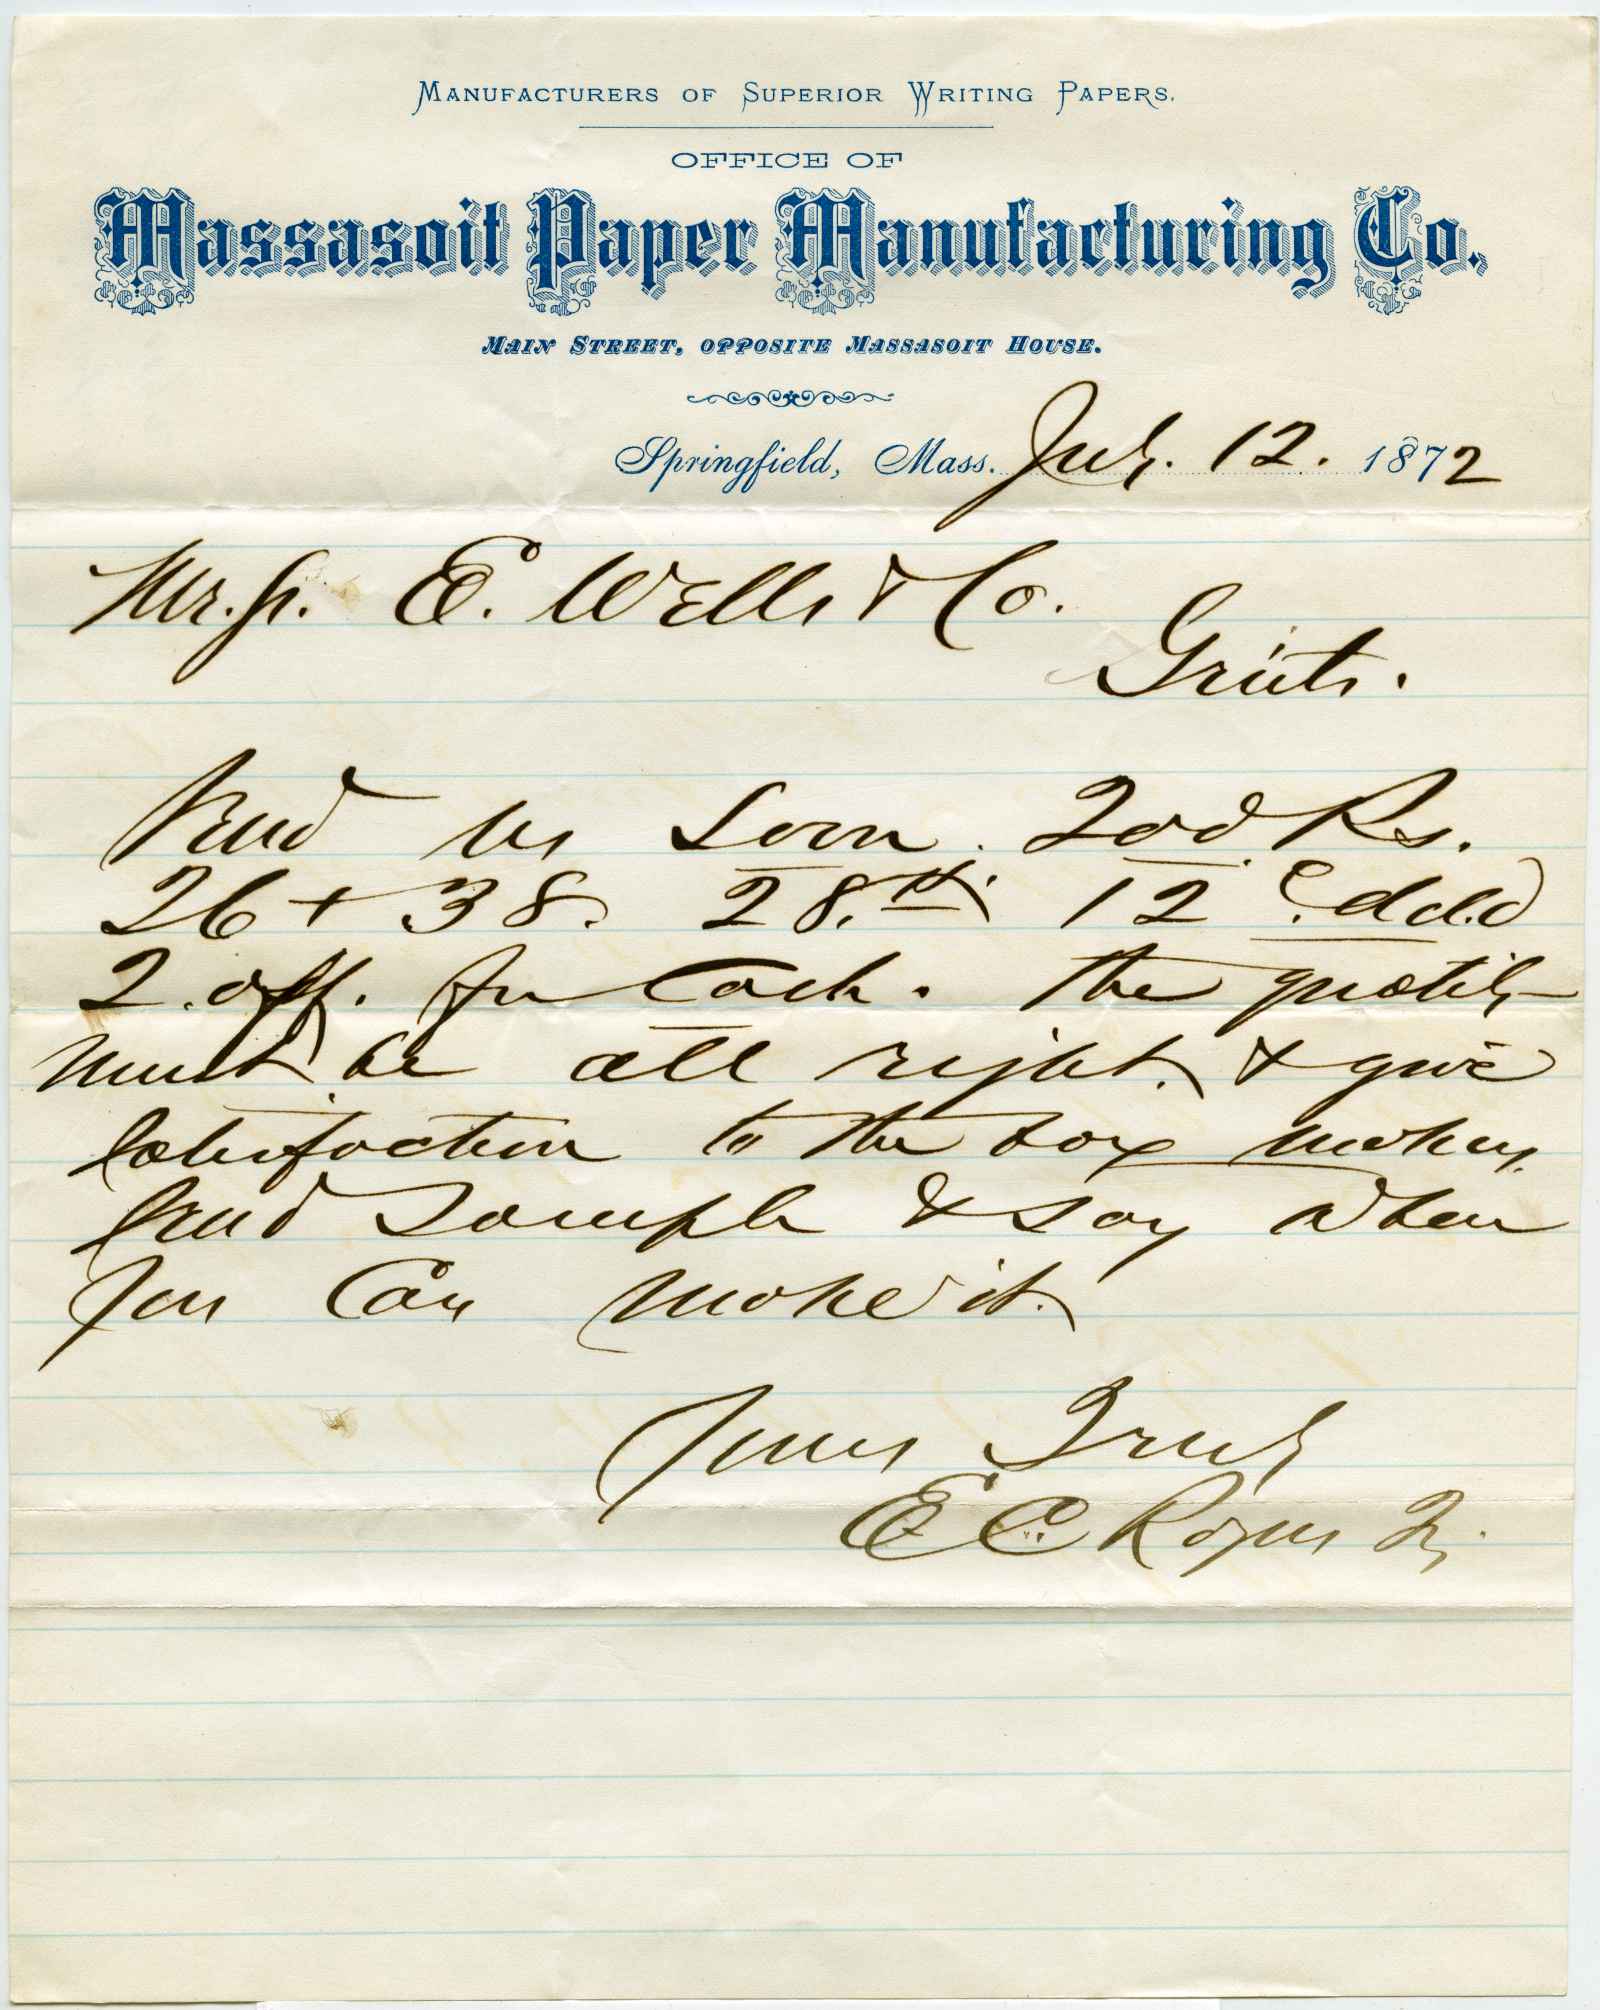 Manufacturers of Superior Writing Papers.
Office of
Massasoit Paper Manufacturing Co.
Main Street, opposite Massasoit House.
Springfield, Mass. July. 12. 1872
E. Wells & Co.
Gents.
Send us soon. 200 Rs.
26 + 38. 28. 12
2. off. for Cash. the
must be all right. & give
satisfaction to the box makers.
Send sample & say when
you can make it.
Yours Truly
E C Rogers Tr.